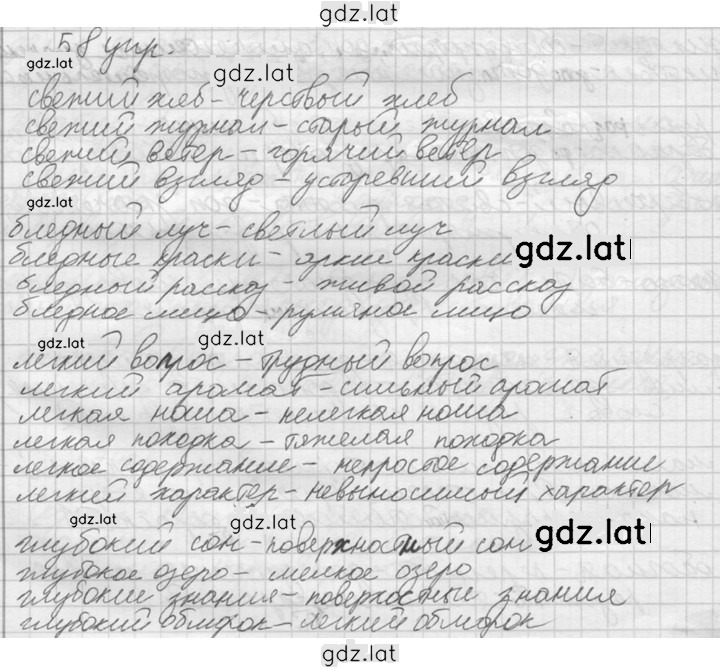 gdz.lat
58 упр.
gdz.lat
свежий хлеб - черствый хлеб
свежий журнал - старый журнал
свежий ветер - горячий ветер
свежий взгляд - устаревший взгляд
gdz.lat
бледный луч - светлый луч
бледные краски - яркие краски
gdz.lat
бледный рассказ - живой рассказ
бледное лицо - румяное лицо
gdz.lat
легкий вопрос - трудный вопрос
легкий аромат - сильный аромат
легкая ноша - нелегкая ноша
легкая походка - тяжелая походка
легкое содержание - непростое содержание
легкий характер - невыносимый характер
gdz.lat gdz.lat gdz.lat
глубокий сон - поверхностный сон
глубокое озеро - мелкое озеро
глубокие знания - поверхосные знания
глубокий обморок - легкий обморок
gdz.lat